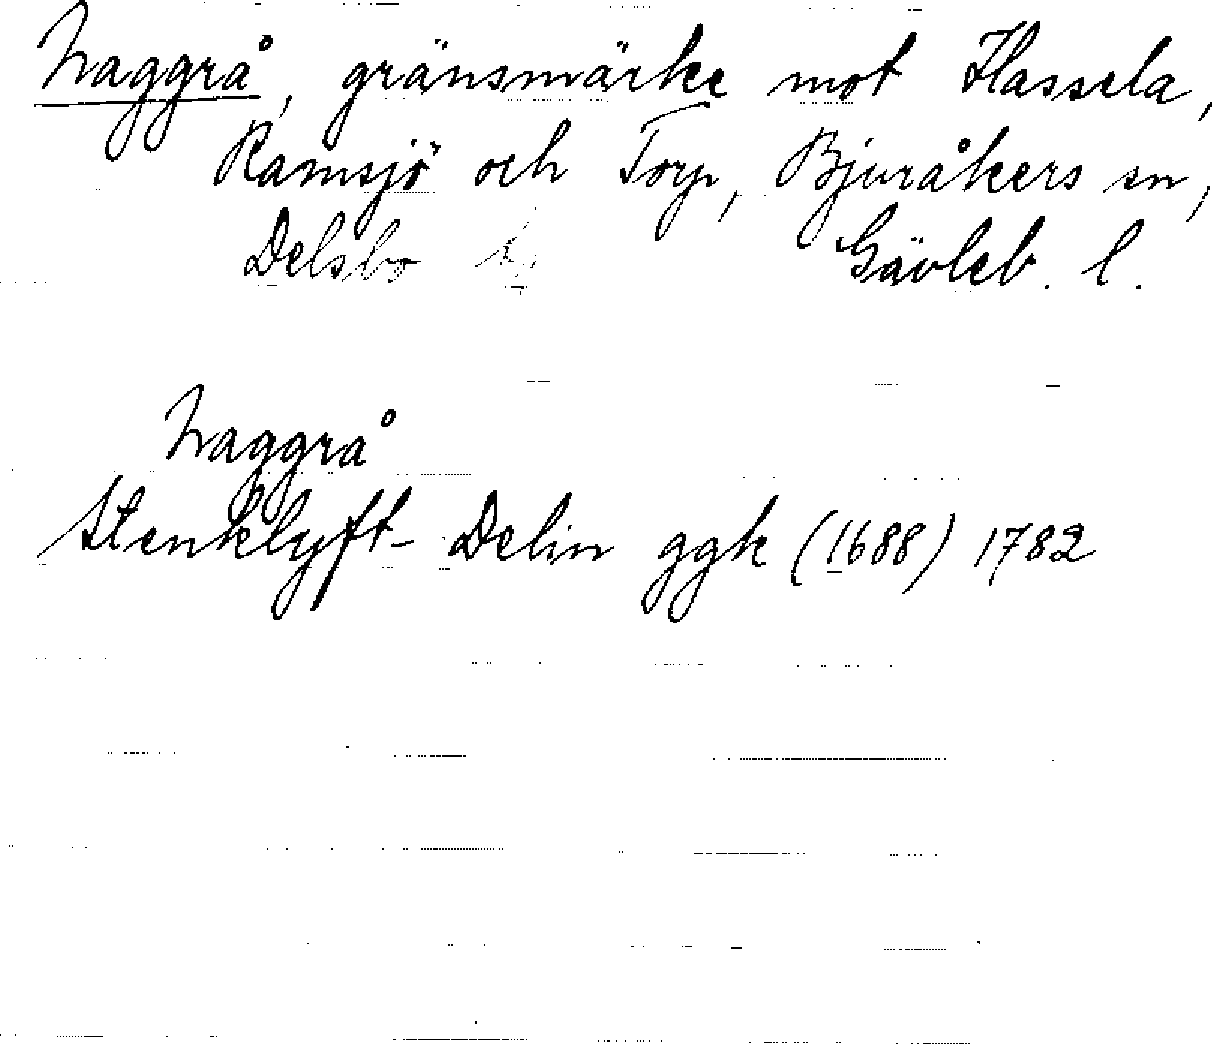 Naggrå, gränsmärke mot Hassela,
Ramsjö och Torp, Bjuråkers sn,
Delsbo Gävleb. l.
Naggrå
Stenklyft- Delin ggk (1688) 1782